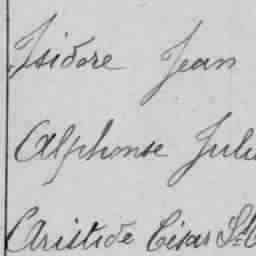 Isidore Jean
Alphonse Juli
Aristide César St